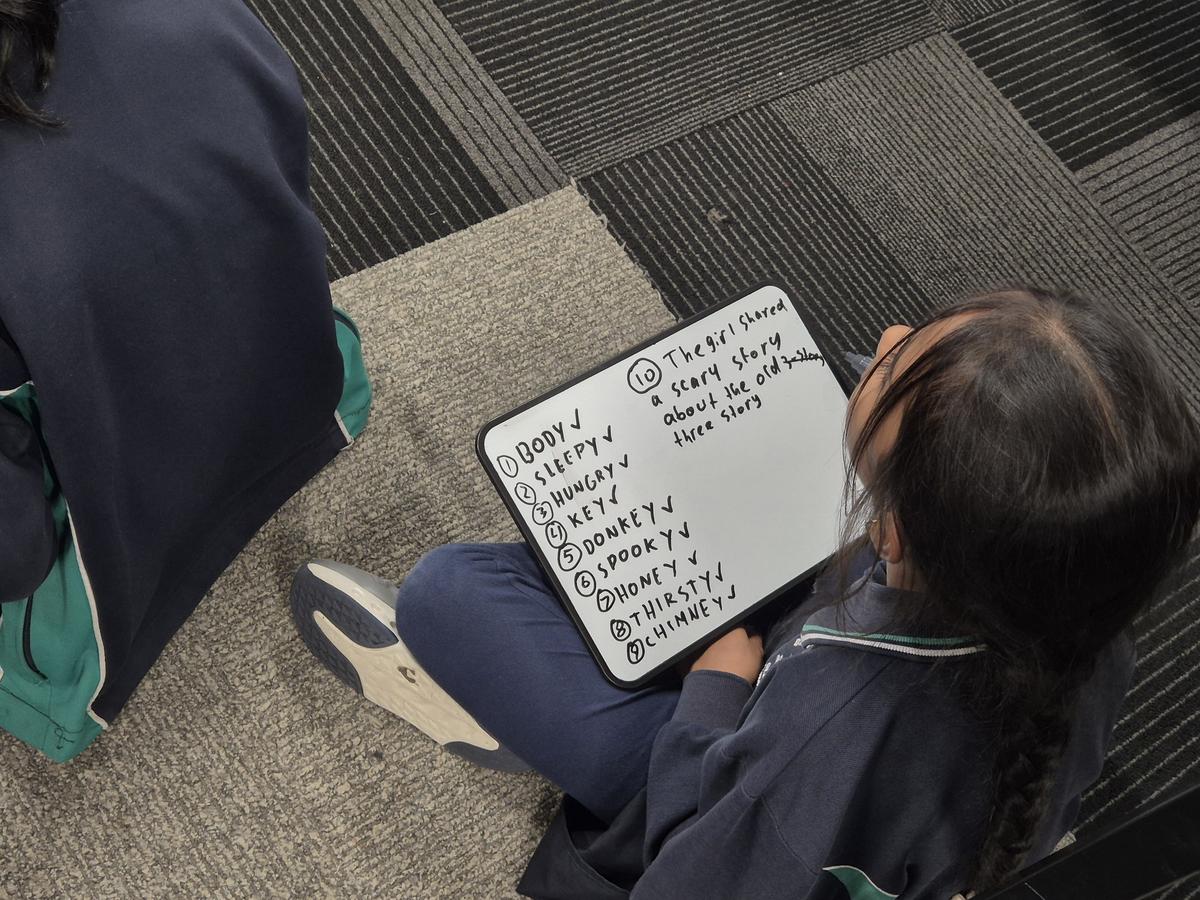 ① BODY ✓
② SLEEPY ✓
③ HUNGRY ✓
④ KEY ✓
⑤ DONKEY ✓
⑥ SPOOKY ✓
⑦ HONEY ✓
⑧ THIRSTY ✓
⑨ CHIMNEY ✓
⑩ The girl shared
a scary story
about the old
three story